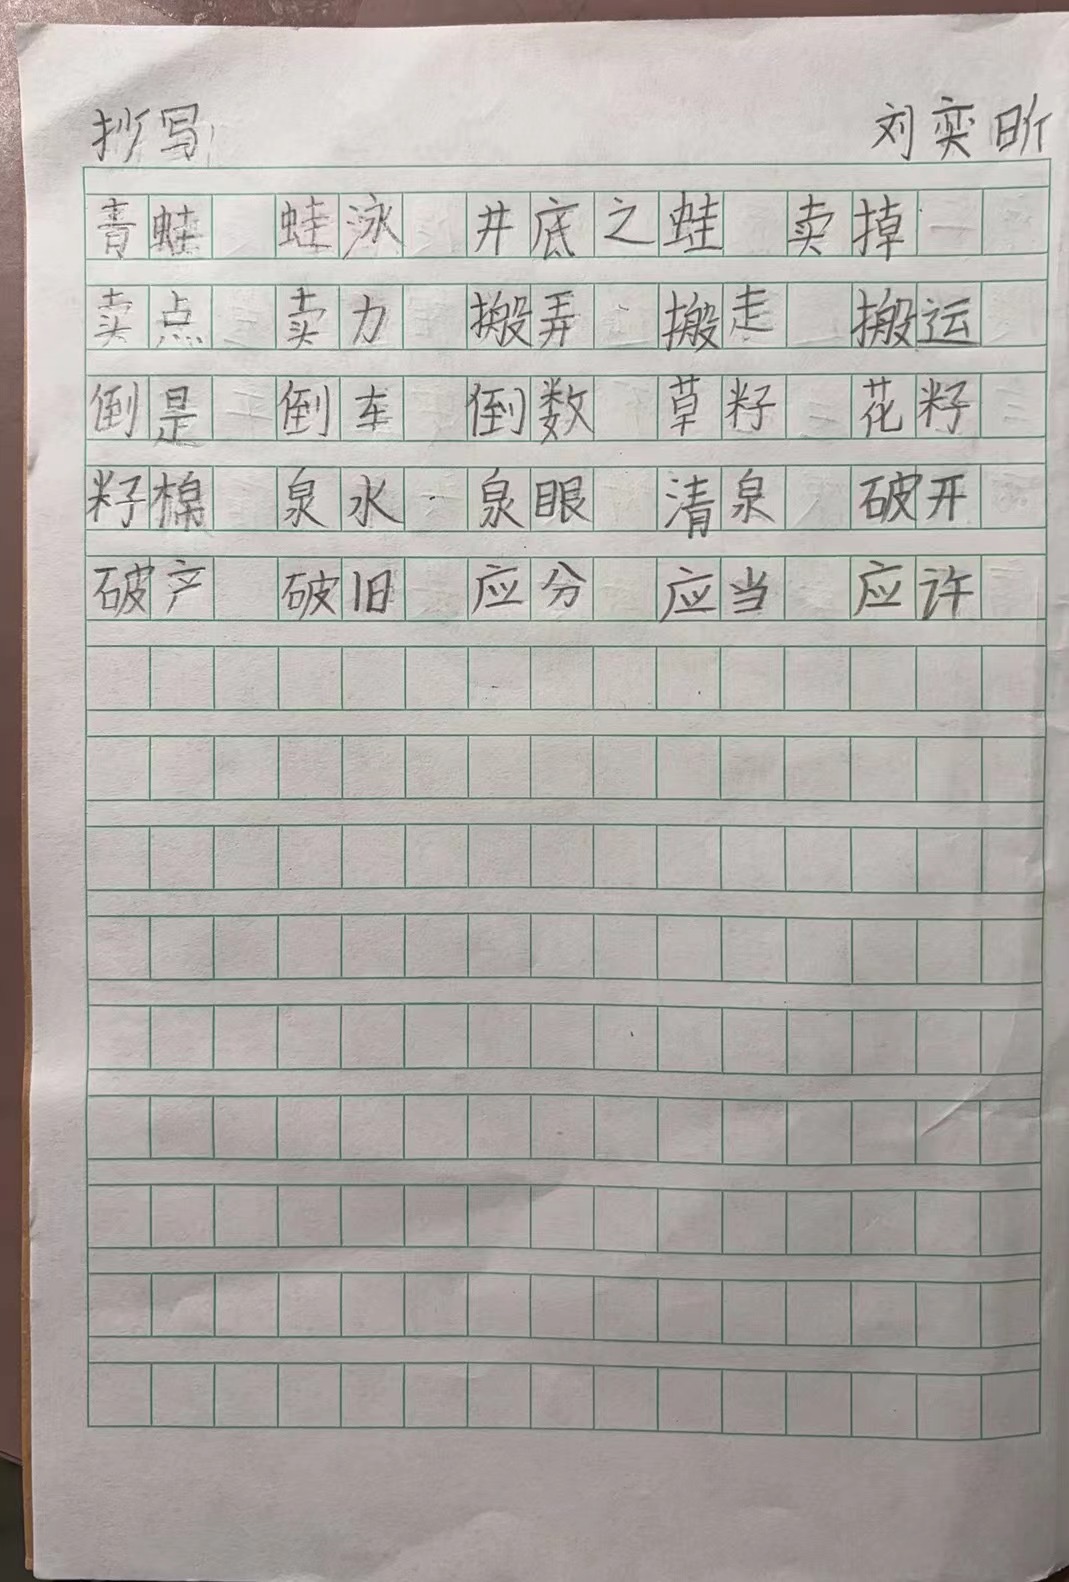 抄写 刘奕昕
青蛙 蛙泳 井底之蛙 卖掉
卖点 卖力 搬弄 搬走 搬运
倒是 倒车 倒数 草籽 花籽
籽棉 泉水 泉眼 清泉 破开
破产 破旧 应分 应当 应许